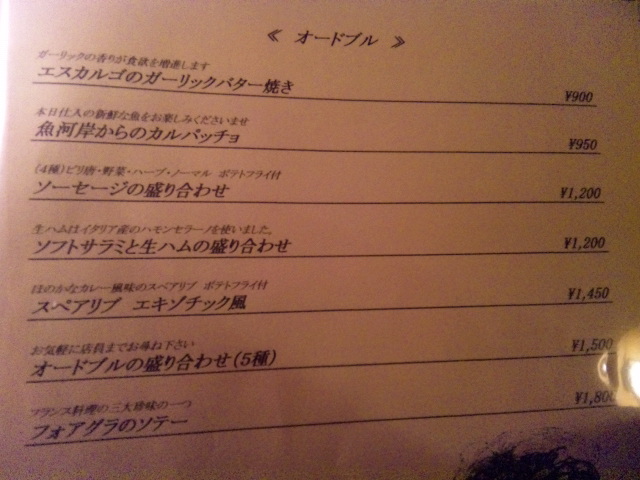 ≪ オードブル ≫
ガーリックの香りが食欲を増進します
エスカルゴのガーリックバター焼き ¥900
本日仕入の新鮮な魚をお楽しみくださいませ
魚河岸からのカルパッチョ ¥950
(4種)ピリ唐・野菜・ハーブ・ノーマル ポテトフライ付
ソーセージの盛り合わせ ¥1,200
生ハムはイタリア産のハモンセラーノを使いました。
ソフトサラミと生ハムの盛り合わせ ¥1,200
ほのかなカレー風味のスペアリブ ポテトフライ付
スペアリブ エキゾチック風 ¥1,450
お気軽に店員までお尋ね下さい
オードブルの盛り合わせ(5種) ¥1,500
フランス料理の三大珍味の一つ
フォアグラのソテー ¥1,800